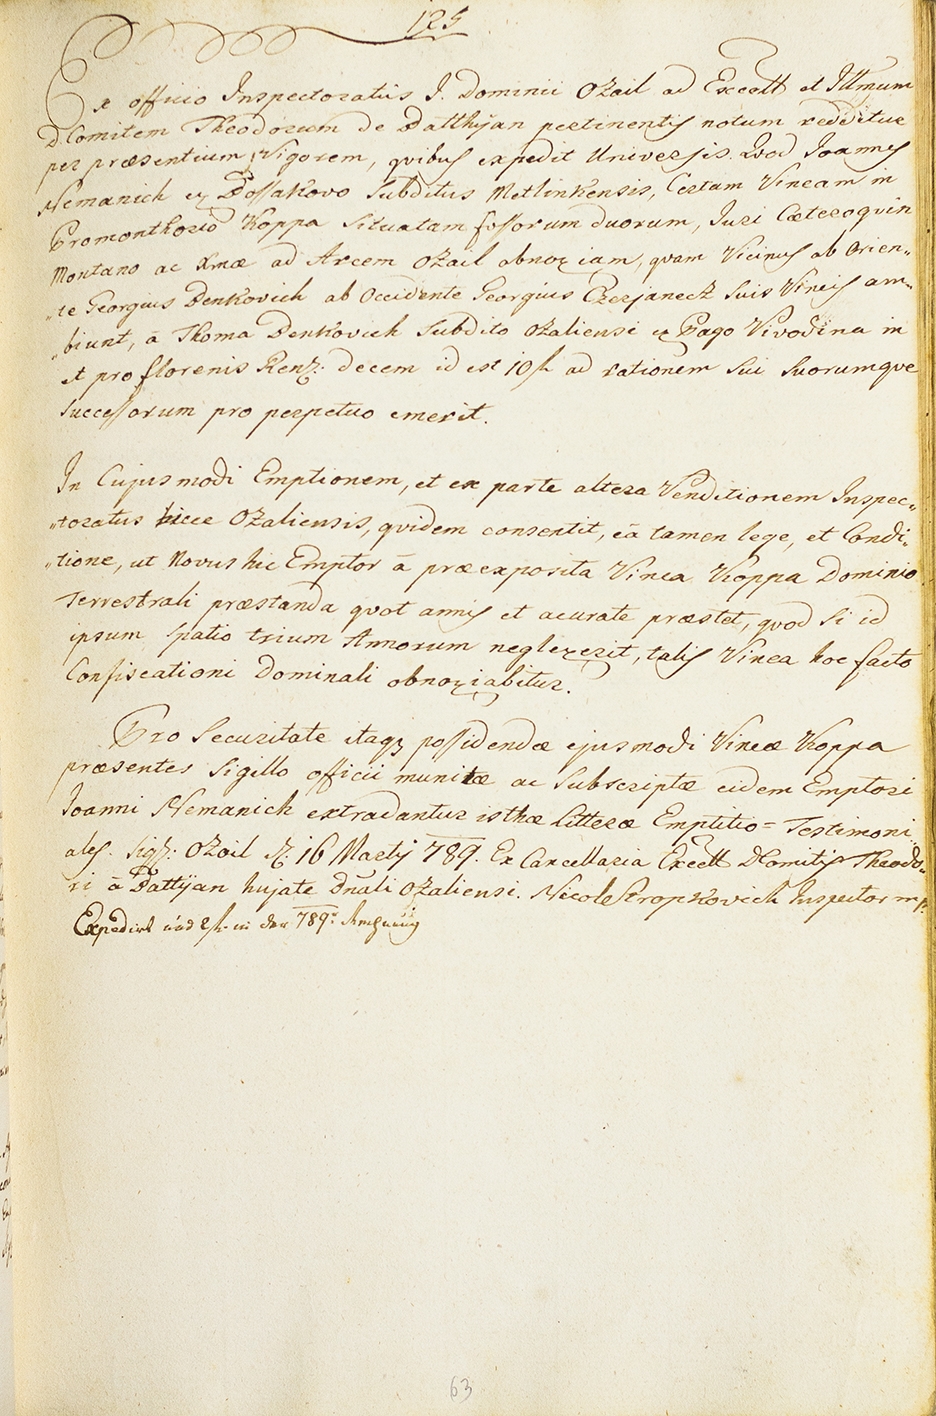 125
Ex officio Inspectoratus I. Dominii Ozail ad Excellt et Illmum
D. Comitem Theodorum de Batthyan pertinentis notum redditur
per præsentium Vigorem, quibus expedit Universis. Quod Joannes
Nemanich ex Bossakovo Subditus Metlinkensis, Certam Vineam in
Promonthorio Koppa Situatam fossorum duorum, Juri Cæteroquin
Montano ac Xmæ ad Arcem Ozail obnoxiam, quam Vicinus ab Orien„
„te Georgius Benkovich ab Occidente Georgius Czerjanecz Suis Vineis am„
„biunt, à Thoma Benkovich Subdito Ozaliensi ex Pago Vivodina in
et pro florenis Renz: decem id est 10 f ad rationem Sui Suorumque
Successorum pro perpetuo emerit.
In Cujusmodi Emptionem, et ex parte altera Venditionem Inspec„
„toratus hicce Ozaliensis, quidem consentit, eâ tamen lege, et Condi„
„tione, ut Novus hic Emptor à præexposita Vinea Koppa Dominio
Terrestrali præstanda quot annis et acurate præstet, quod Si id
ipsum Spatio trium Annorum neglexerit, talis Vinea hoc facto
Confiscationi Dominali obnoxiabitur.
Pro Securitate itaq3 possidendæ ejusmodi Vineæ Koppa
præsentes Sigillo officii munitæ ac Subscriptæ eidem Emptori
Joanni Nemanich extradantur isthæ Litteræ Emptitio= Testimoni
ales. Sigz: Ozail d. 16 Martij 789. Ex Cancellaria Excellt D Comitis Theodo„
ri à Battyan hujate Dnali Ozaliensi. Nicole Kropkovich Inspector mp.
Expedirt und 2 f. in der 789r
63